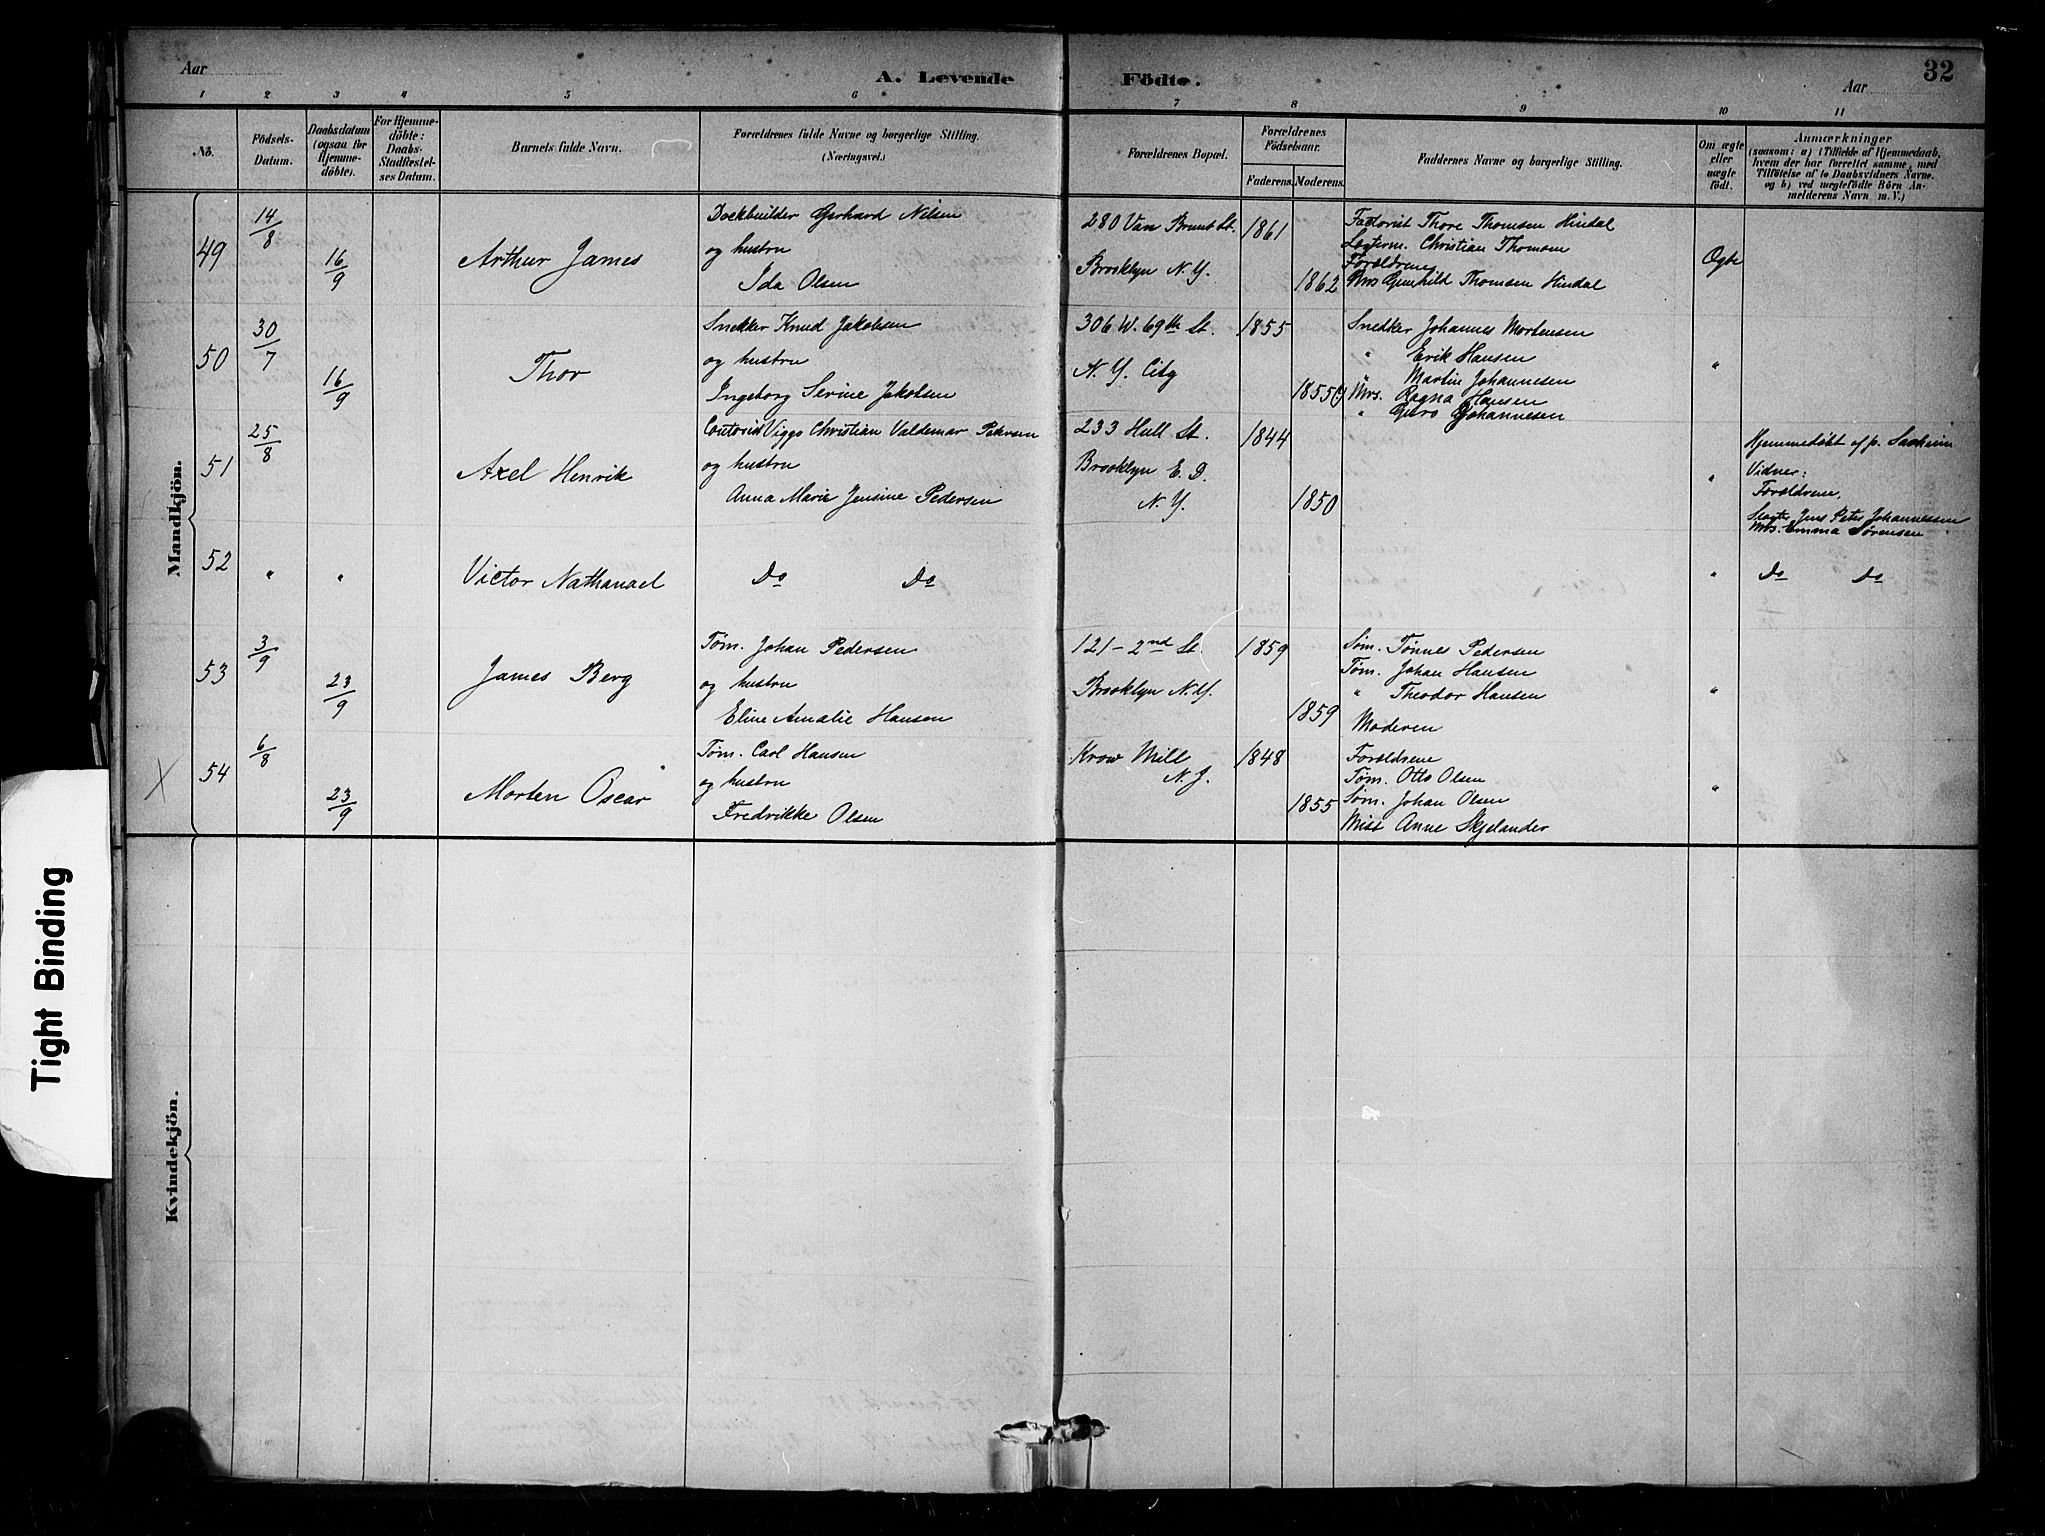 Aar
A. Levende Födte.
Aar
32
1 2 3 4 5 6 7 8 9 10 11
No.
Födsels-
Datum.
Daabsdatum
(ogsaa for
Hjemme-
döbte).
For Hjemme-
döbte:
Daabs-
Stadfæstel-
ses Datum.
Barnets fulde Navn.
Forældrenes fulde Navne og borgerlige Stilling.
(Næringsvei.)
Forældrenes Bopæl.
Forældrenes
Födselsaar.
Faderens. Moderens.
Faddernes Navne og borgerlige Stilling.
Om ægte
eller
uægte
födt.
Anmærkninger
(saasom: a) i Tilfælde af Hjemmedaab,
hvem der har forrettet samme, med
Tilföielse af to Daabsvidners Navne.
og b) ved uægtefödte Börn An-
melderens Navn m. V.)
Mandkjön.
49
14/8
16/9
Arthur James
Dockbuilder Gerhard Nilsen
og hustru
Ida Olsen
280 Van Brunt St.
Brooklyn N. Y.
1861
1862
Thore Thomsen Hindal
Christian Thomsen
Forældrene
Mrs Gunhild Thomsen Hindal
Ægte
50
30/7
16/9
Thor
Snekker Knud Jakobsen
og hustru
Ingeborg Serine Jakobsen
306 W. 69th St.
N. Y. City
1855
1855
Snedker Johannes Mortensen
" Erik Hansen
" Martin Johannesen
Mrs. Ragna Hansen
" Johannesen
"
51
25/8
Axel Henrik
Viggo Christian Valdemar Petersen
og hustru
Anna Marie Jensine Pedersen
233 Hull St.
Brooklyn E. D.
N. Y.
1844
1850
"
Hjemmedøbt af p. Saxheim
Vidner:
Forældrene,
Jens Peter Johannessen
Mrs. Emma Sørensen
52
" "
Victor Nathanael
Do Do
"
Do Do
53
3/9
23/9
James Berg
Tøm. Johan Pedersen
og hustru
Eline Amalie Hansen
121 - 2nd St.
Brooklyn N.Y.
1859
1859
Søm. Tønnes Pedersen
Tøm. Johan Hansen
" Theodor Hansen
Moderen
"
54
6/8
23/9
Morten Oscar
Tøm. Carl Hansen
og hustru
Fredrikke Olsen
Krow Mill
N. J.
1848
1855
Forældrene
Tøm. Otto Olsen
Søm. Johan Olsen
Miss Anne Skjelander
"
Kvindekjön.
Tight Binding